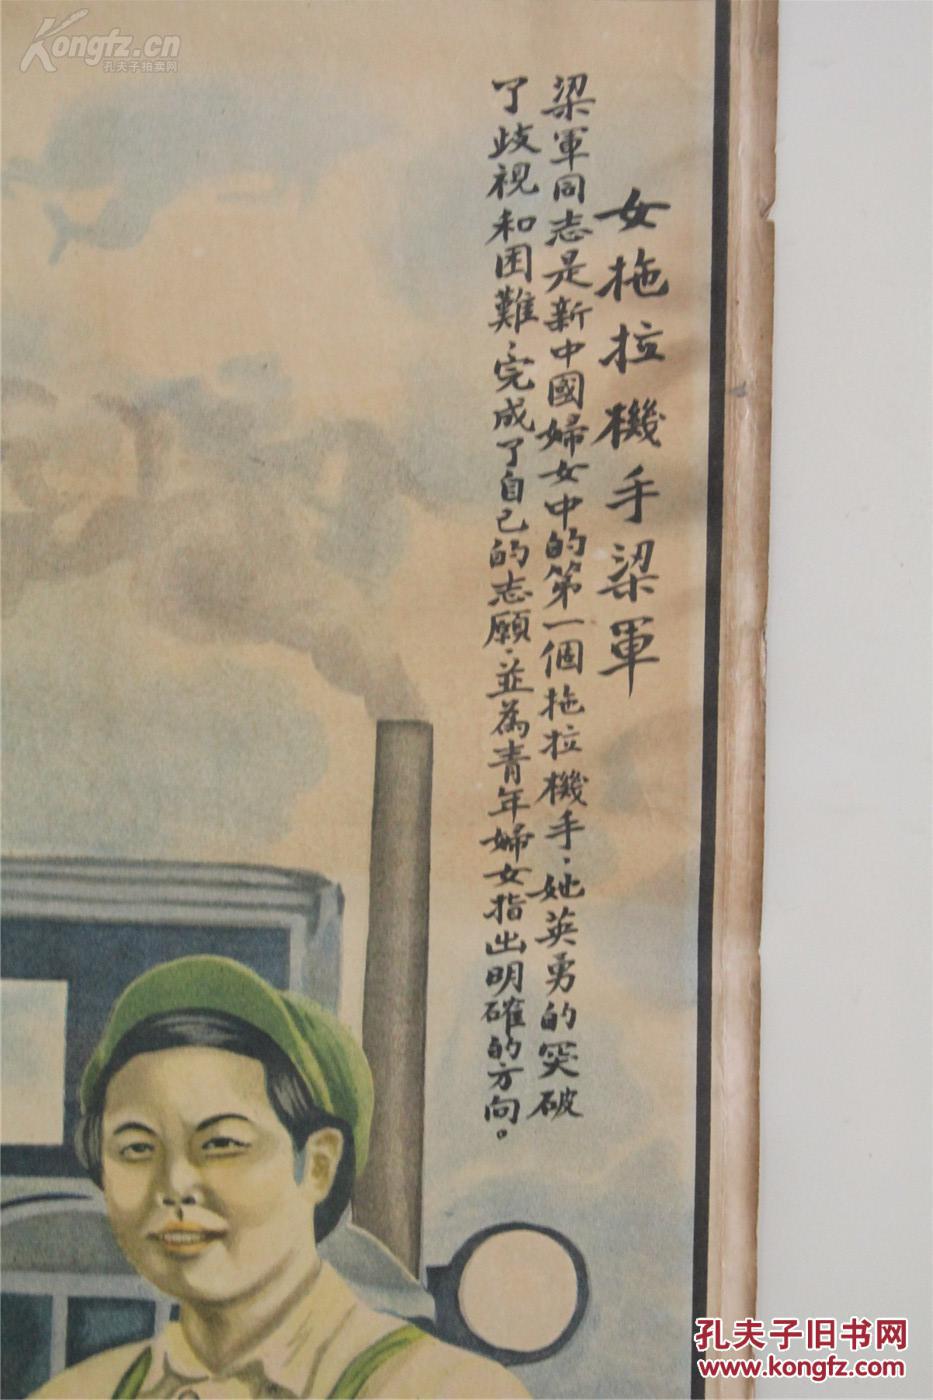 Kongfz.cn
孔夫子拍卖网
女拖拉機手梁軍
梁軍同志是新中國婦女中的第一個拖拉機手，她英勇的突破
了歧視和困難，完成了自己的志願，並為青年婦女指出明確的方向。
孔夫子旧书网
www.kongfz.com